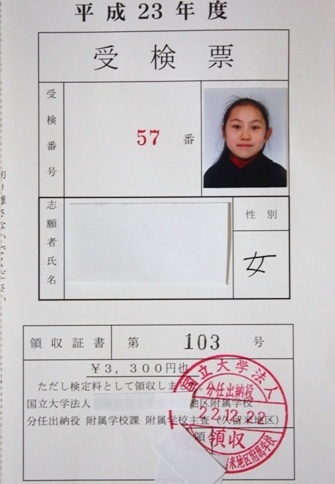 平成23年度
受検票
受検番号
57 番
志願者氏名
性別
女
領収証書 第 103 号
¥3,300円也
ただし検定料として領収しま
国立大学法人 地区附属学校
分任出納役 附属学校課 附属学校主査(久留米地区)
国立大学法人
分任出納役
22.12.22
領収
米地区附属学校